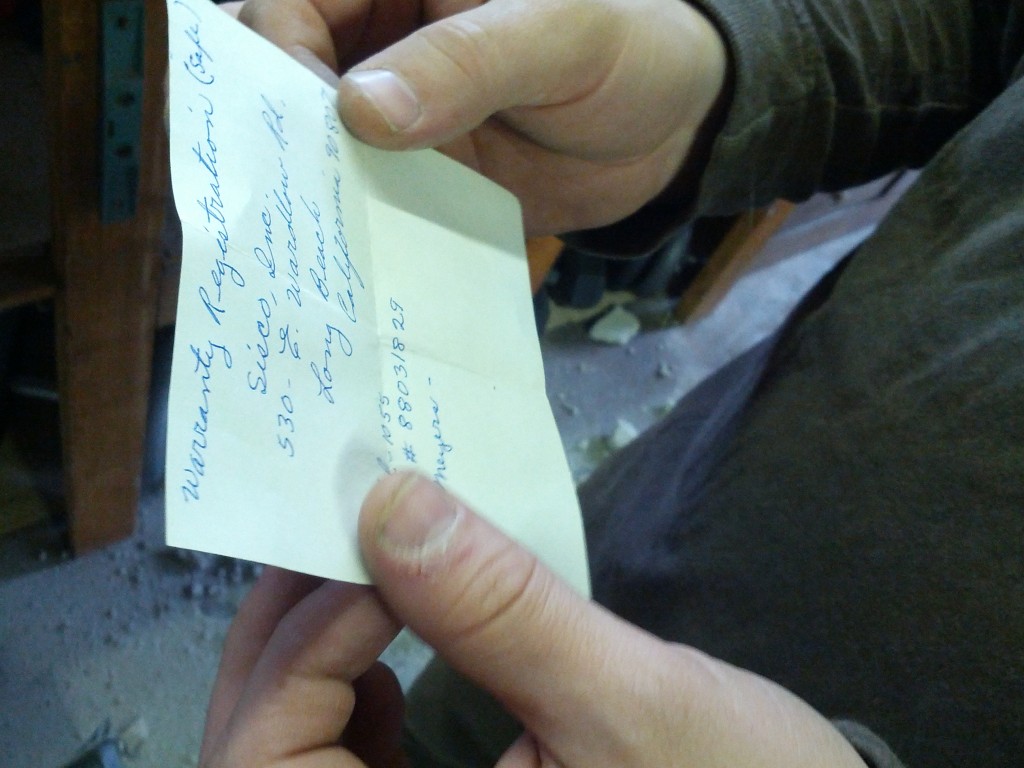 Warranty Registration (Safe)
Sisco, Inc.
530 - E. Wardlow Rd.
Long Beach
California 9080
-1055
# 88031829
Meyers -